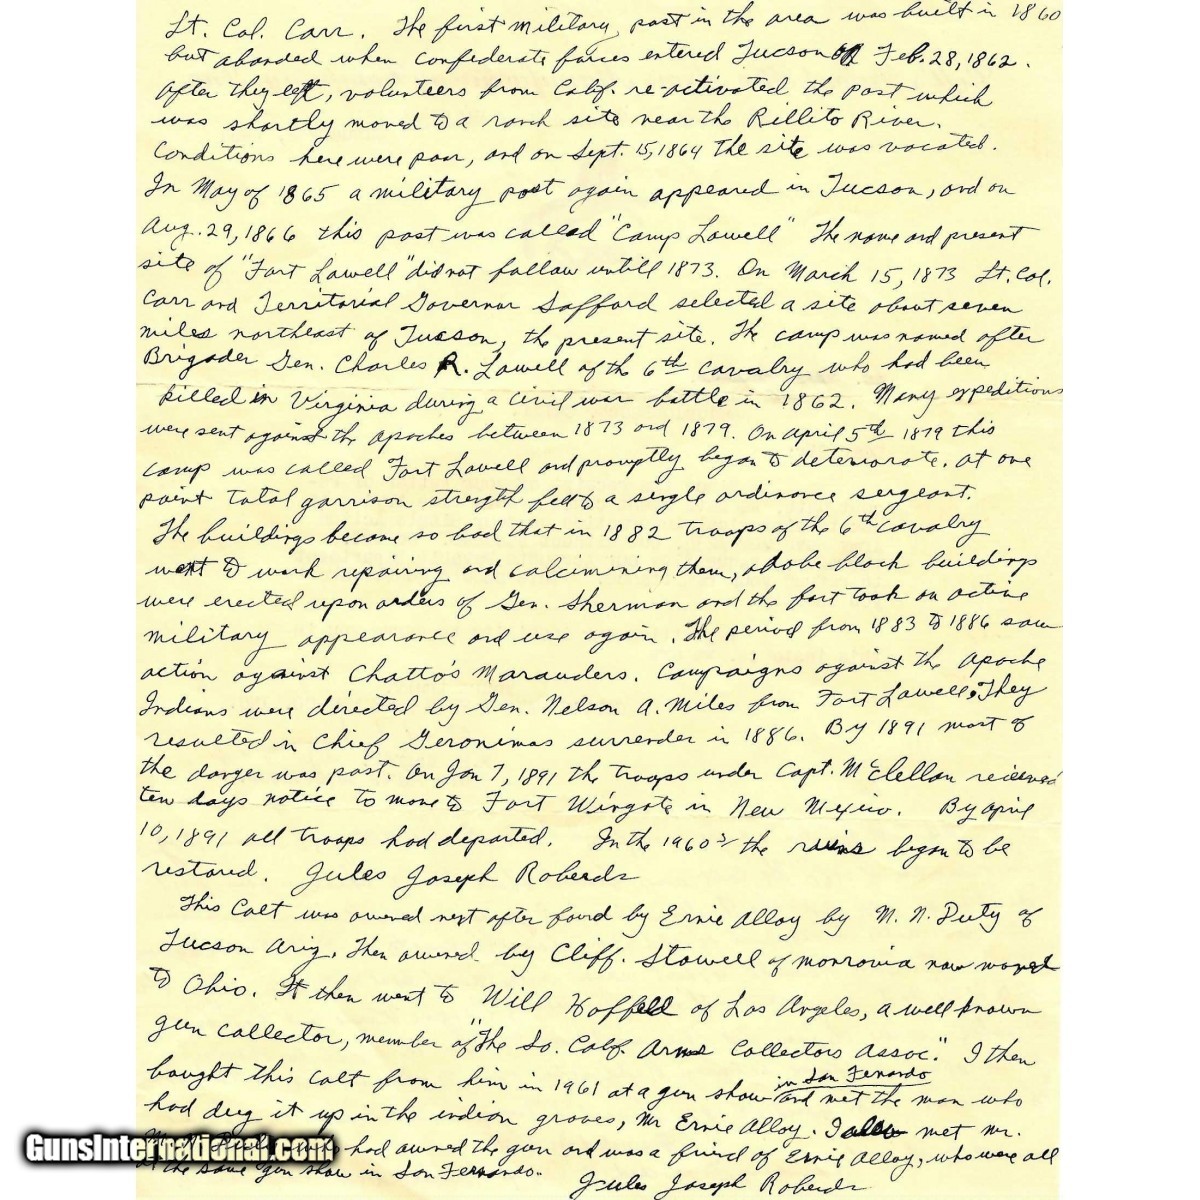 Lt. Col. Carr. The first military post in the area was built in 1860
but abanded when confederate forces entered Tucson on Feb. 28, 1862.
After they left, volunteers from Calif. re-activated the post which
was shortly moved to a ranch site near the Rillito River.
Conditions here were poor, and on Sept. 15, 1864 the site was vacated.
In May of 1865 a military post again appeared in Tucson, and on
Aug. 29, 1866 this post was called "Camp Lowell" The name and present
site of "Fort Lowell" did not follow untill 1873. On March 15, 1873 Lt. Col.
Carr and Territorial Governor Safford selected a site about seven
miles northeast of Tucson, the present site. The camp was named after
Brigader Gen. Charles R. Lowell of the 6th cavalry who had been
killed in Virginia during a civil war battle in 1862. Many expeditions
were sent against the apaches between 1873 and 1879. On April 5th 1879 this
camp was called Fort Lowell and promptly began to deteriorate. At one
point total garrison strength fell to a single ordinance sergeant.
The buildings became so bad that in 1882 troops of the 6th cavalry
went to work repairing and calcimining them, adobe block buildings
were erected upon orders of Gen. Sherman and the fort took on active
military appearance and use again. The period from 1883 to 1886 saw
action against Chatto's Marauders. Campaigns against the Apache
Indians were directed by Gen. Nelson A. Miles from Fort Lowell. They
resulted in Chief Geronimos surrender in 1886. By 1891 most of
the danger was past. On Jan 7, 1891 the troops under Capt. McClellan recieved
ten days notice to move to Fort Wingate in New Mexico. By April
10, 1891 all troops had departed. In the 1960's the ruins began to be
restored. Jules Joseph Roberds
This Colt was owned next after found by Ernie Alloy by M. N. Duty of
Tucson Ariz, Then owned by Cliff. Stowell of monrovia now moved
to Ohio. It then went to Will Hoffeld of Los Angeles, a well known
gun collector, member of "The So. Calif. Arms Collectors Assoc." I then
bought this colt from him in 1961 at a gun show in San Fernando and met the man who
had dug it up in the indian graves, Mr Ernie Alloy. I also met Mr.
had owned the gun and was a friend of Ernie Alloy, who were all
at the same gun show in San Fernando.
Jules Joseph Roberds
GunsInternational.com